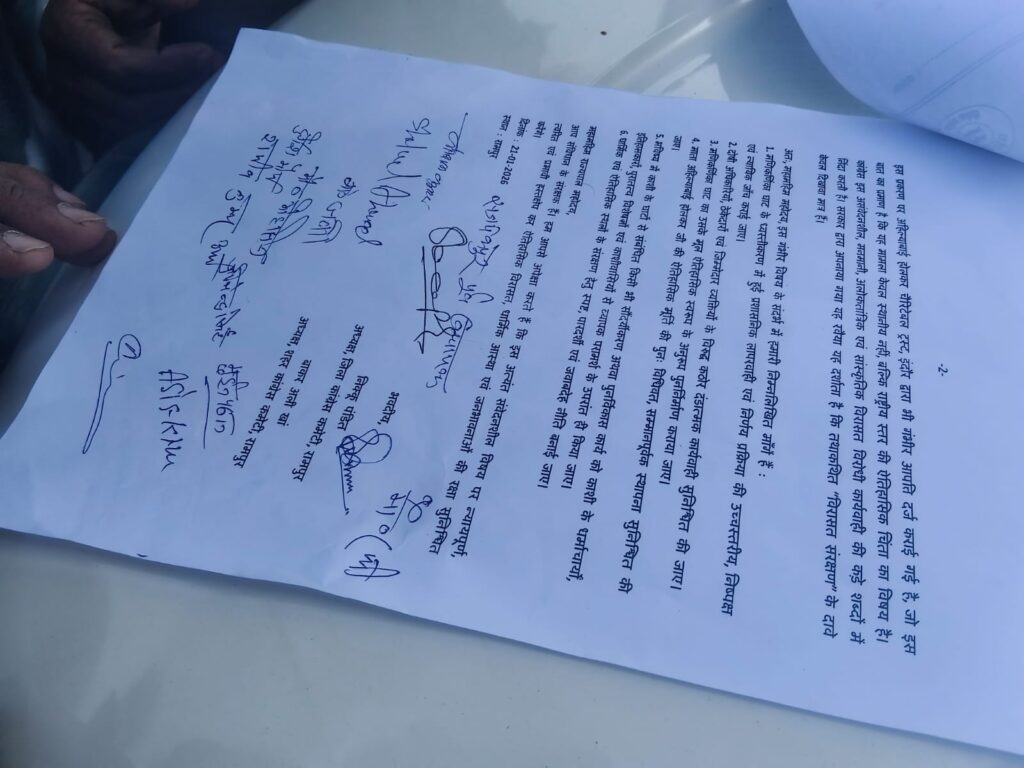 -2-
इस प्रकरण पर अहिल्याबाई होलकर चैरिटेबल ट्रस्ट, इंदौर द्वारा भी गंभीर आपत्ति दर्ज कराई गई है, जो इस
बात का प्रमाण है कि यह मामला केवल स्थानीय नहीं, बल्कि राष्ट्रीय स्तर की ऐतिहासिक चिंता का विषय है।
कांग्रेस इस असंवेदनशील, मनमानी, अलोकतांत्रिक एवं सांस्कृतिक विरासत विरोधी कार्यवाही की कड़े शब्दों में
निंदा करती है। सरकार द्वारा अपनाया गया यह रवैया यह दर्शाता है कि तथाकथित "विरासत संरक्षण" के दावे
केवल दिखावा मात्र हैं।
अतः महामहिम महोदय इस गंभीर विषय के संदर्भ में हमारी निम्नलिखित माँगें हैं :
1. मणिकर्णिका घाट के ध्वस्तीकरण में हुई प्रशासनिक लापरवाही एवं निर्णय प्रक्रिया की उच्चस्तरीय, निष्पक्ष
एवं न्यायिक जाँच कराई जाए।
2. दोषी अधिकारियों, ठेकेदारों एवं जिम्मेदार व्यक्तियों के विरुद्ध कठोर दंडात्मक कार्यवाही सुनिश्चित की जाए।
3. मणिकर्णिका घाट का उसके मूल ऐतिहासिक स्वरूप के अनुरूप पुनर्निर्माण कराया जाए।
4. माता अहिल्याबाई होलकर जी की ऐतिहासिक मूर्ति की पुनः विधिवत, सम्मानपूर्वक स्थापना सुनिश्चित की
जाए।
5. भविष्य में काशी के घाटों से संबंधित किसी भी सौंदर्यीकरण अथवा पुनर्विकास कार्य को काशी के धर्माचार्यों,
इतिहासकारों, पुरातत्व विशेषज्ञों एवं काशीवासियों से व्यापक परामर्श के उपरांत ही किया जाए।
6. धार्मिक एवं ऐतिहासिक स्थलों के संरक्षण हेतु स्पष्ट, पारदर्शी एवं जवाबदेह नीति बनाई जाए।
महामहिम राज्यपाल महोदया,
आप संविधान के संरक्षक हैं। हम आपसे अपेक्षा करते हैं कि इस अत्यंत संवेदनशील विषय पर न्यायपूर्ण,
त्वरित एवं प्रभावी हस्तक्षेप कर ऐतिहासिक विरासत, धार्मिक आस्था एवं जनभावनाओं की रक्षा सुनिश्चित
करेंगे।
दिनांक : 22-01-2026
स्थान : रामपुर
भवदीय,
अध्यक्ष, जिला कांग्रेस कमेटी, रामपुर
अध्यक्ष, शहर कांग्रेस कमेटी, रामपुर